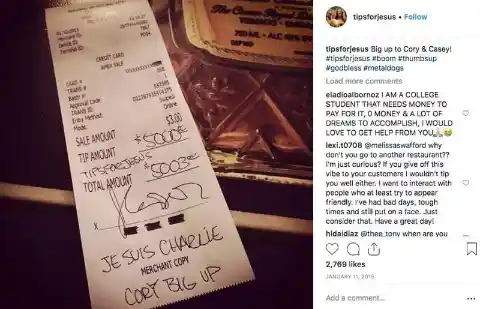 CREDIT CARD
AMEX SALE
CARD #
TRANS #
Batch #
Approval Code
TRANS ID
Entry Method:
Mode:
Swiped
Online
SALE AMOUNT
$3.00
TIP AMOUNT
$5000
TIPSFORJESUS
TOTAL AMOUNT
$5003
X
JE SUIS CHARLIE
MERCHANT COPY
CORY BIG UP
750 ML
tipsforjesus • Follow
tipsforjesus Big up to Cory & Casey!
#tipsforjesus #boom #thumbsup
#godbless #metaldogs
Load more comments
eladioalbornoz I AM A COLLEGE
STUDENT THAT NEEDS MONEY TO
PAY FOR IT, 0 MONEY & A LOT OF
DREAMS TO ACCOMPLISH, I WOULD
LOVE TO GET HELP FROM YOU🙏😂
lexi.t0708 @melissaswafford why
don't you go to another restaurant??
I'm just curious? If you give off this
vibe to your customers I wouldn't tip
you well either. I want to interact with
people who at least try to appear
friendly. I've had bad days, tough
times and still put on a face. Just
consider that. Have a great day!
hidaidiaz @thee_tony when are you
2,769 likes
JANUARY 11, 2015
Add a comment...